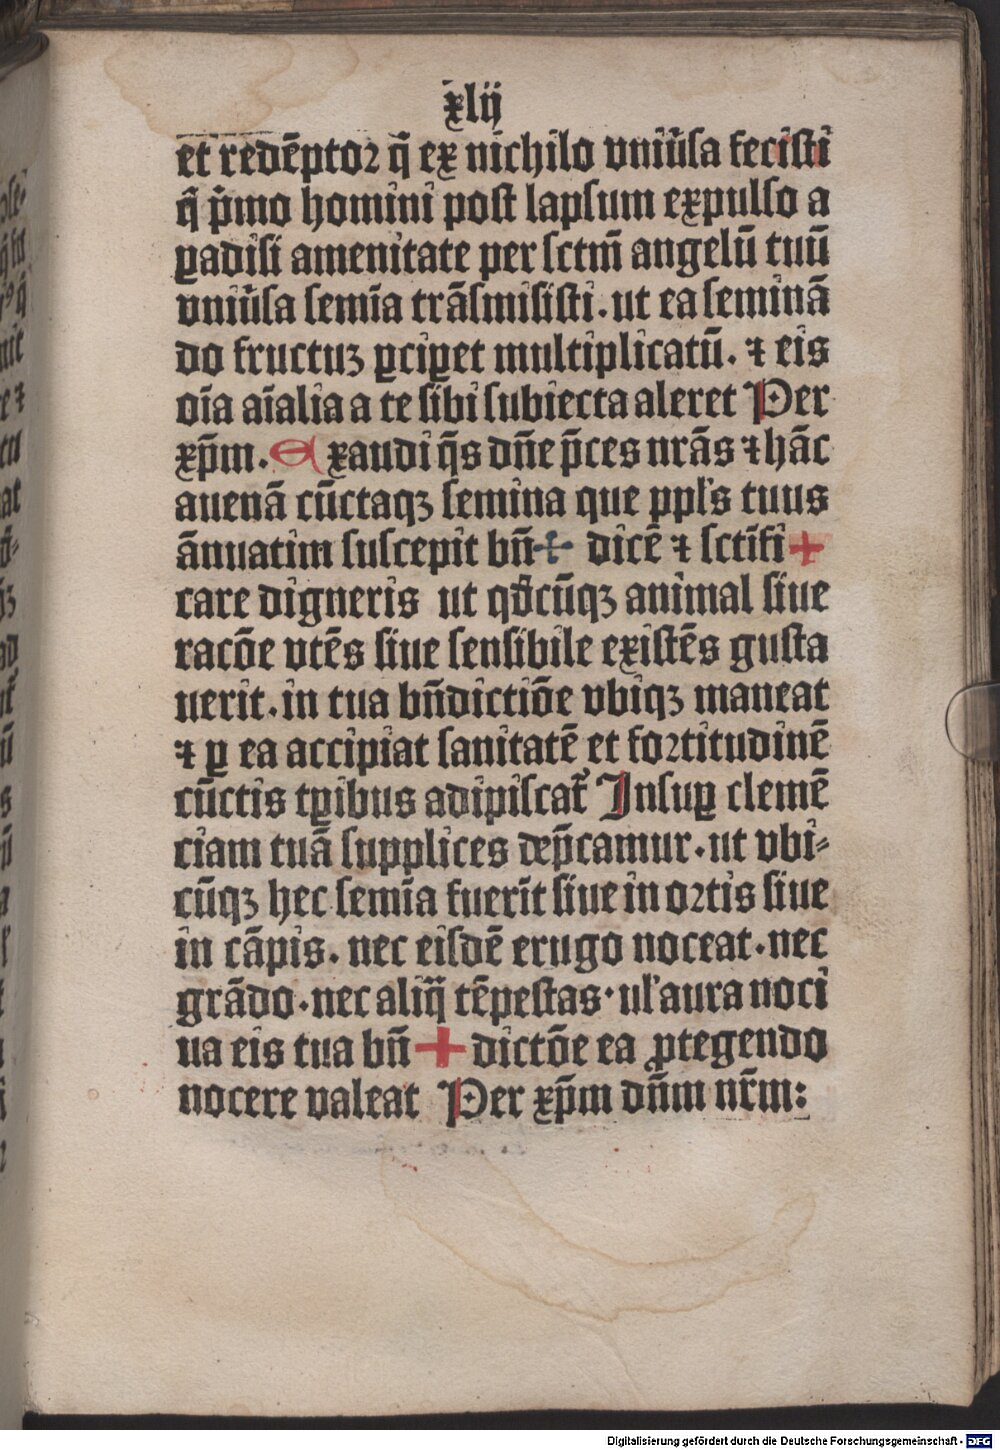 xlij
et redēptor q̄ ex nichilo vniu̅sa fecisti
q̄ p̄mo homini post lapsum expulso a
ꝑadisi amenitate per sctm̄ angelū tuū
vniu̅sa semīa trāsmisisti. ut ea seminā
do fructuꝫ ꝑciꝑet multiplicatū. ⁊ eis
oīa aīalia a te sibi subiecta aleret Per
xp̄m. Exaudi q̄s dn̄e p̄ces nrās ⁊ hāc
auenā cūctaqꝫ semina que ppl's tuus
ānuatim suscepit bn̄ ✢ dicē ⁊ sctīfi +
care digneris ut qd̄cūqꝫ animal siue
racōe vtēs siue sensibile existēs gusta
uerit. in tua bn̄dictiōe vbiqꝫ maneat
⁊ ꝑ ea accipiat sanitatē et fortitudinē
cūctis tꝑibus adipiscat᷑ Insuꝑ clemē
ciam tuā supplices dep̄camur. ut vbi⸗
cūqꝫ hec semīa fuerīt siue in ortis siue
in cāpis. nec eisdē erugo noceat. nec
grādo. nec aliq̄ tēpestas. ul' aura noci
ua eis tua bn̄ + dictōe ea ꝓtegendo
nocere valeat Per xp̄m dn̄m nr̄m:
Digitalisierung gefördert durch die Deutsche Forschungsgemeinschaft - DFG